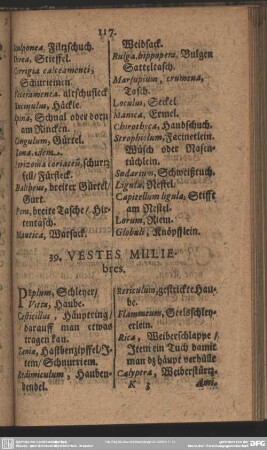 117.
Fültzschuch.
Stieffel.
Corrigia calceamenti,
Schurriemen.
altschufleck
Häckle.
Schnal oder dorn
am Rincken.
Cingulum, Gürtel.
Zona, idem.
schurtz
fell/ Fürfleck.
Baltheus, breiter Gürtel/
Gurt.
breite Tasche/ Hir-
tentasch.
Mantica, Watsack.
Weidsack.
Bulga, hippopera, Bulgen
Satteltasch.
Marsupium, crumena,
Tasch.
Loculus, Seckel.
Manica, Ermel.
Chirotheca, Handschuch.
Strophiolum, Facinetlein.
Wüsch oder Nasen-
tüchlein.
Sudarium, Schweißtuch.
Ligula, Nestel.
Capitellum ligulæ, Stifft
am Nestel.
Lorum, Riem.
Globuli, Knöpfflein.
39. VESTES MULIE-
bres.
Peplum, Schleyer/
Vitta, Haube.
Cesticillus, Häuptring/
darauff man etwas
tragen kan.
Tænia, Hastbenzipffel/ J-
tem/ Schnurriem.
Redimiculum, Hauben-
bendel.
Reticulum, gestrickte Hau-
be.
Flammeum,
erlein.
Rica, Weiberschlappe/
Jtem ein Tuch damit
man dz häupt verhülle
Calyptra, Weiberstürtz.
K 3
Ami-